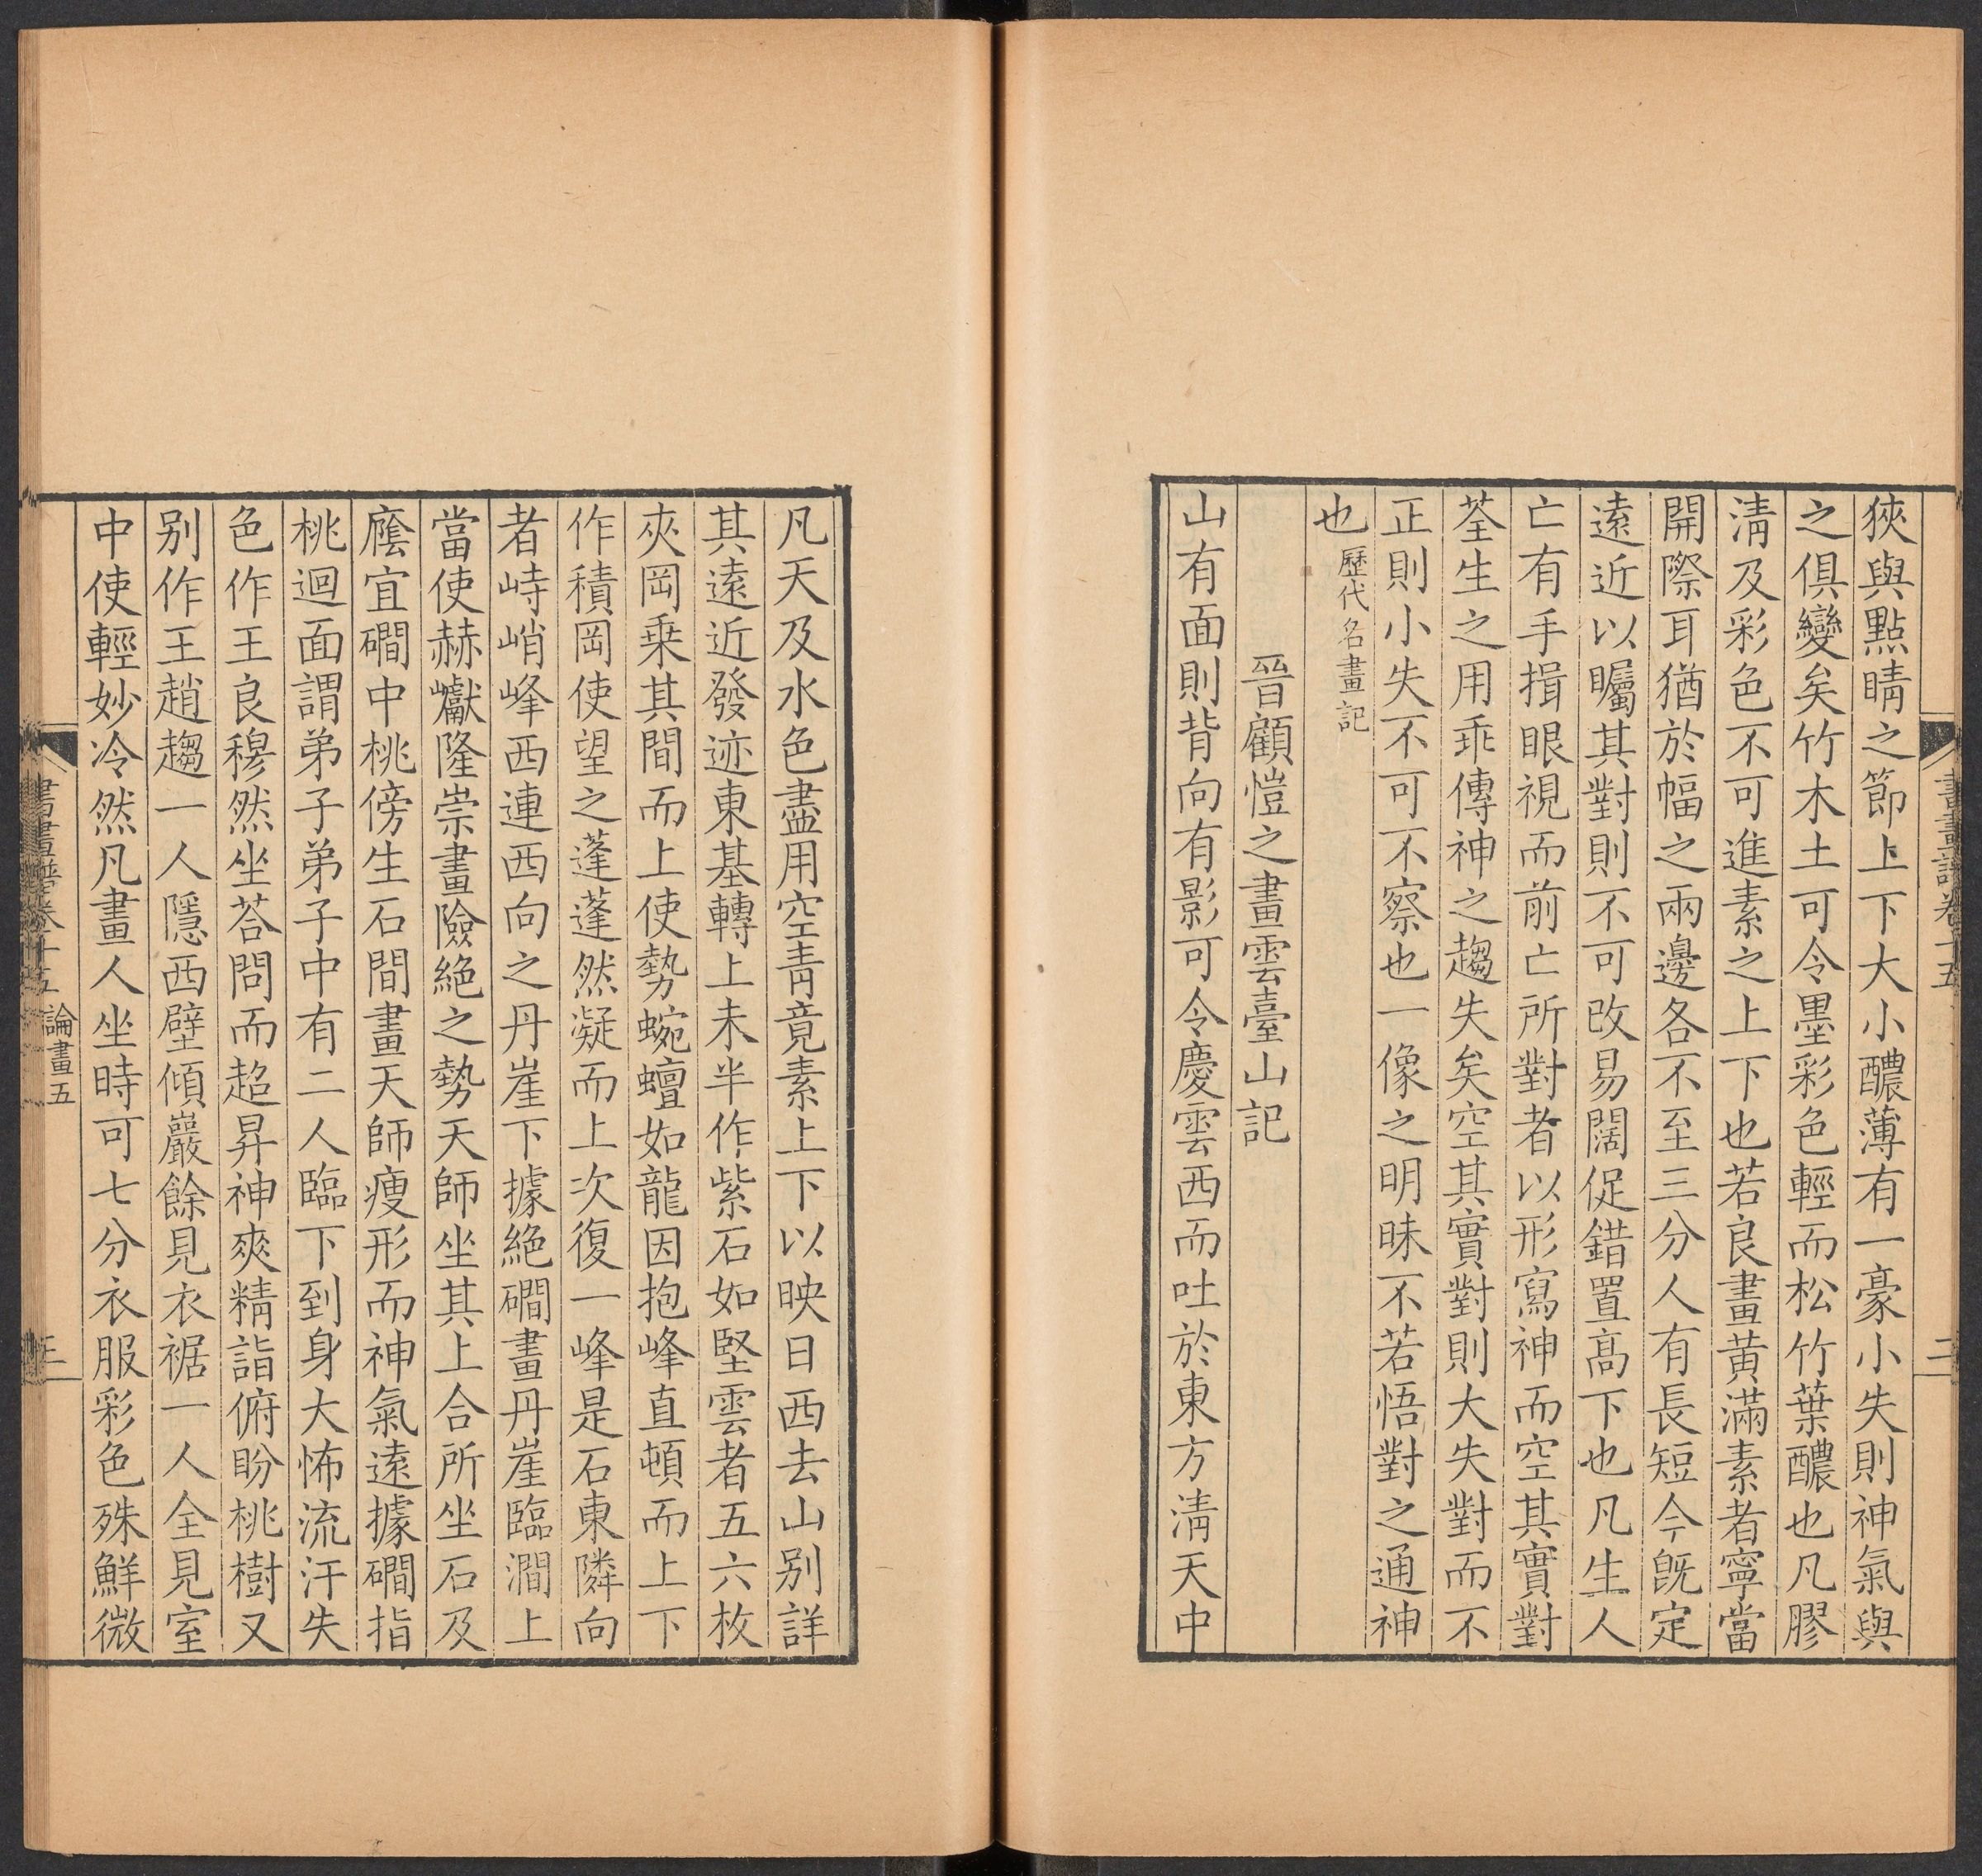 狹與點睛之節上下大小醲薄有一豪小失則神氣與
之俱變矣竹木土可令墨彩色輕而松竹葉醲也凡膠
淸及彩色不可進素之上下也若良畫黄滿素者寧當
開際耳猶於幅之兩邊各不至三分人有長短今旣定
遠近以矚其對則不可改易闊促錯置高下也凡生人
亡有手揖眼視而前亡所對者以形寫神而空其實對
荃生之用乖傳神之趨失矣空其實對則大失對而不
正則小失不可不察也一像之明昧不若悟對之通神
也歷代名畫記
晉顧愷之畫雲臺山記
山有面則背向有影可令慶雲西而吐於東方淸天中
凡天及水色盡用空靑竟素上下以映日西去山别詳
其遠近發迹東基轉上未半作紫石如堅雲者五六枚
夾岡乗其間而上使勢蜿蟺如龍因抱峰直頓而上下
作積岡使望之蓬蓬然凝而上次復一峰是石東隣向
者峙峭峰西連西向之丹崖下據絶磵畫丹崖臨澗上
當使赫巘隆崇畫險絶之勢天師坐其上合所坐石及
廕宜磵中桃傍生石間畫天師瘦形而神氣遠據磵指
桃迴面謂弟子弟子中有二人臨下到身大怖流汗失
色作王良穆然坐荅問而超昇神爽精詣俯盼桃樹又
别作王趙趨一人隱西壁傾巖餘見衣裾一人全見室
中使輕妙冷然凡畫人坐時可七分衣服彩色殊鮮微
書畫譜卷十五 論畫五